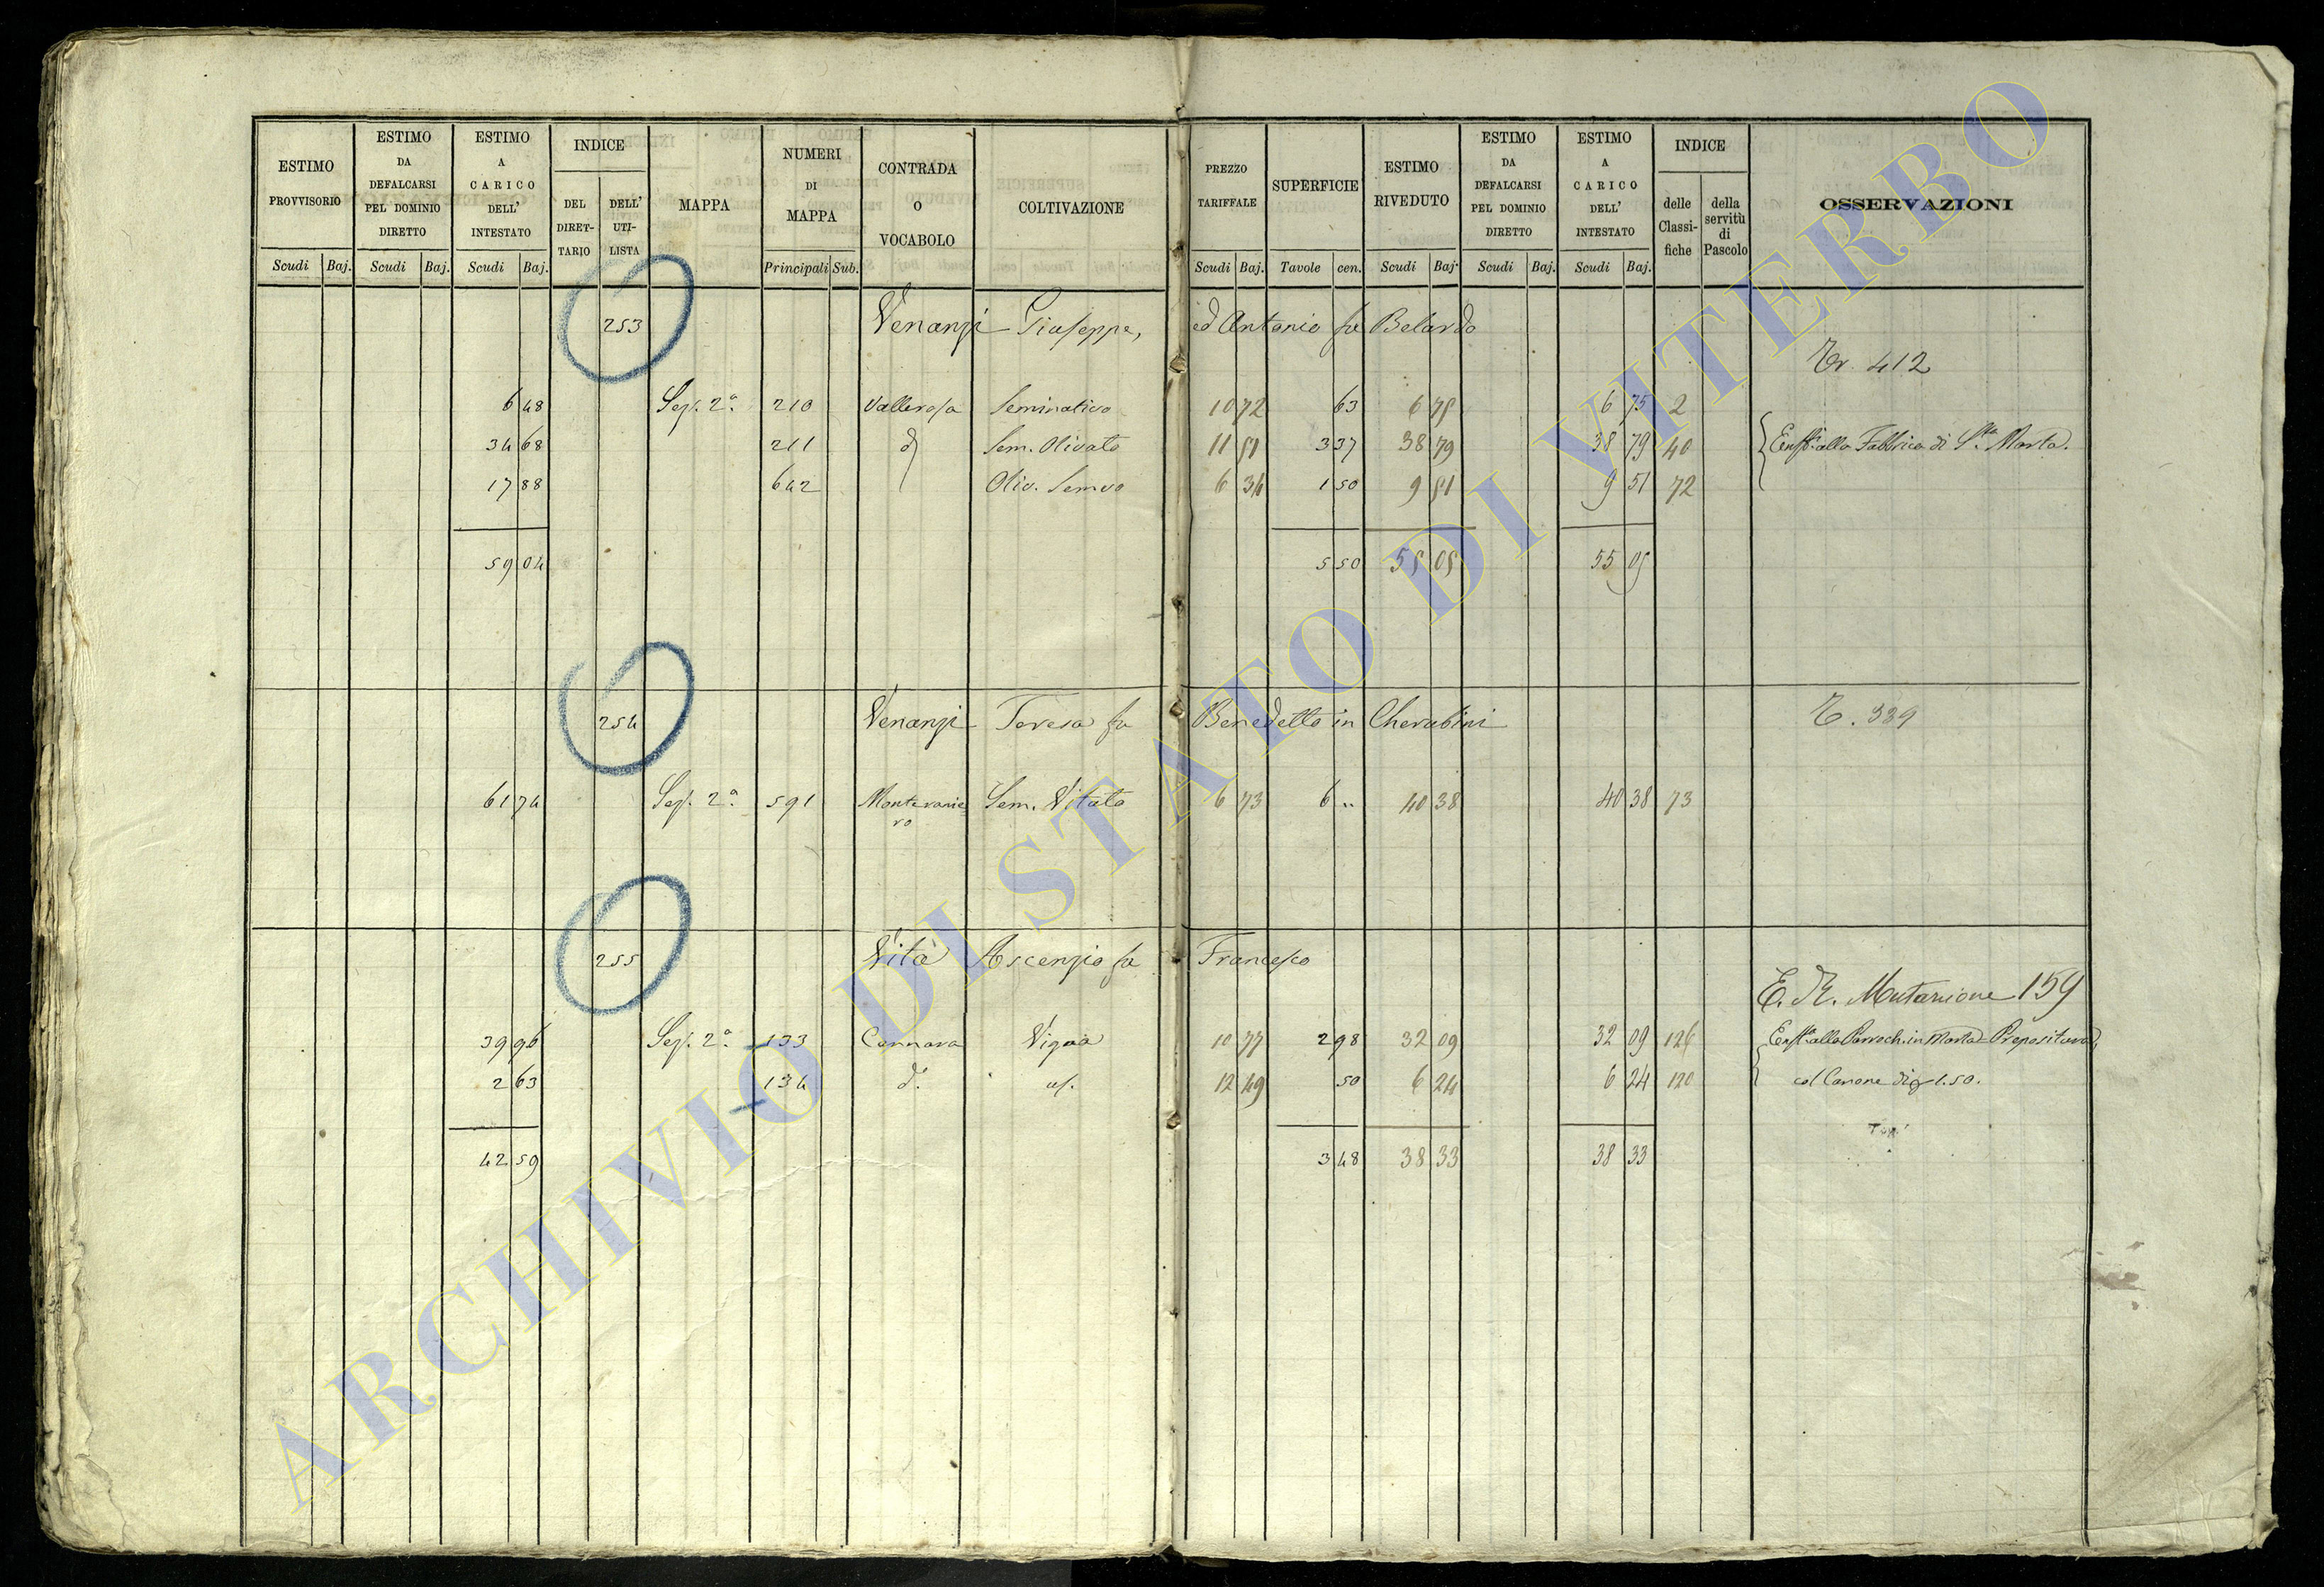 ESTIMO PROVVISORIO Scudi Baj.
ESTIMO DA DEFALCARSI PEL DOMINIO DIRETTO Scudi Baj.
ESTIMO A CARICO DELL' INTESTATO Scudi Baj.
INDICE DEL DIRET-TARIO DELL' UTI-LISTA
MAPPA
NUMERI DI MAPPA Principali Sub.
CONTRADA O VOCABOLO
COLTIVAZIONE
PREZZO TARIFFALE Scudi Baj.
SUPERFICIE Tavole cen.
ESTIMO RIVEDUTO Scudi Baj.
ESTIMO DA DEFALCARSI PEL DOMINIO DIRETTO Scudi Baj.
ESTIMO A CARICO DELL' INTESTATO Scudi Baj.
INDICE delle Classi-fiche della servitù di Pascolo
OSSERVAZIONI
253 Venanzi Giuseppe, ed Antonio fu Belardo
Tr. 412
6 48 Sez. 2a. 210 Vallerosa Seminativo 10 72 63 6 75 6 75 2
34 68 211 d Sem. Olivato 11 51 3 37 38 79 38 79 40 alla Fabbrica di Sta. Marta.
17 88 642 Oliv. Semvo 6 34 1 50 9 51 9 51 72
59 04 5 50 55 05 55 05
254 Venanzi Teresa fu Benedetto in Cherubini T. 339
61 74 Sez. 2a. 591 Montevarie=
ro Sem. Vitato 6 73 6 .. 40 38 40 38 73
255 Vita Ascenzio fu Francesco
Mutazione 159
39 96 Sez. 2a. 133 Cannara Vigna 10 77 2 98 32 09 32 09 126 alla Parroch. in Marta=Prepositura,
2 63 134 do. 12 49 50 6 24 6 24 120 col Canone di 1.50.
42 59 3 48 38 33 38 33
ARCHIVIO DI STATO DI VITERBO